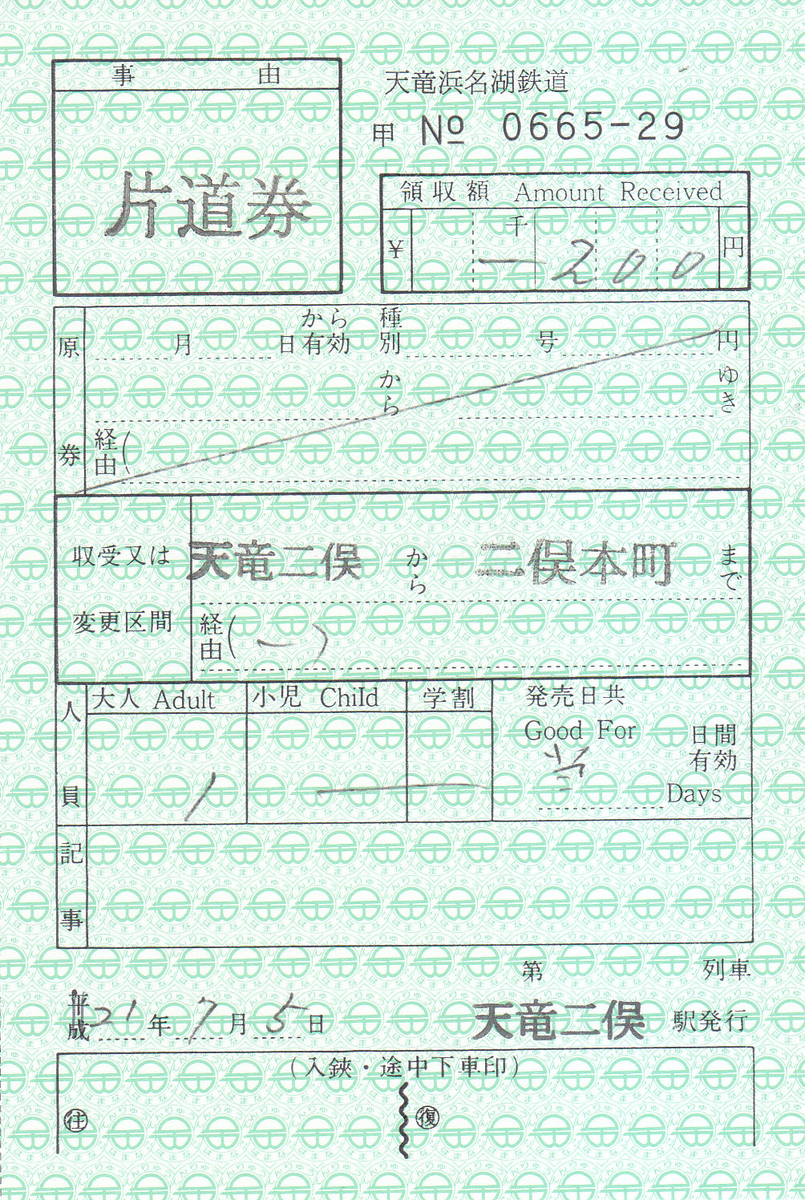 事由
片道券
天竜浜名湖鉄道
甲 № 0665-29
領収額 Amount Received
¥ 千 一 200 円
原券
月 日から有効 種別 号 円
から ゆき
経由(
収受又は変更区間
天竜二俣 から 二俣本町 まで
経由( ー )
人員
大人 Adult 小児 Child 学割
1 ー
発売日共
Good For 日間有効
当 Days
記事
第 列車
平成21年7月5日 天竜二俣 駅発行
(入鋏・途中下車印)
往 復